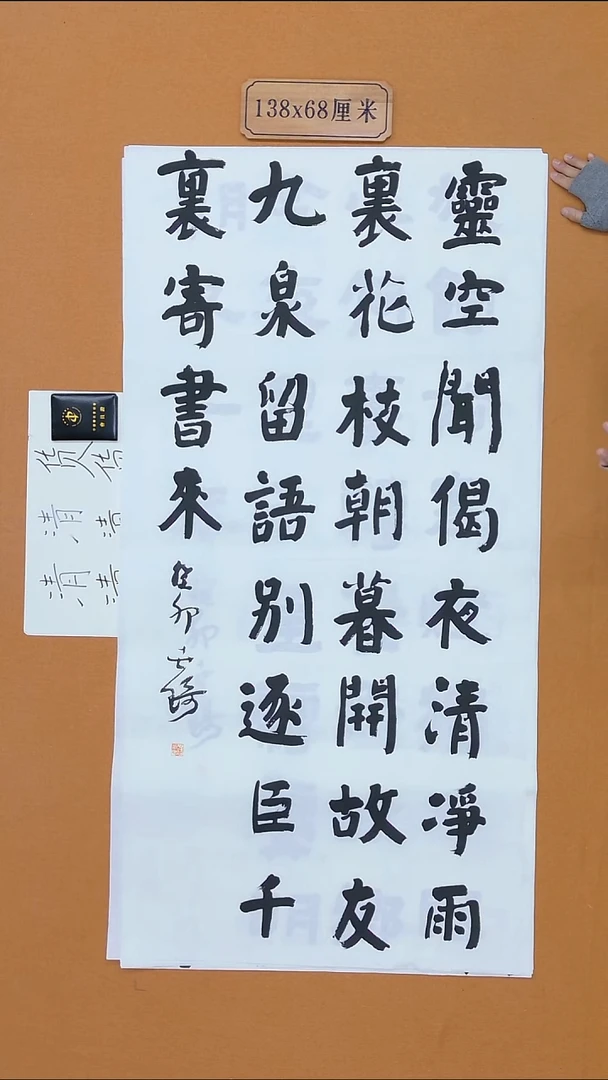 138x68厘米
靈空聞偈夜清淨雨
裏花枝朝暮開故友
九泉留語別逐臣千
裏寄書來
癸卯
清
清